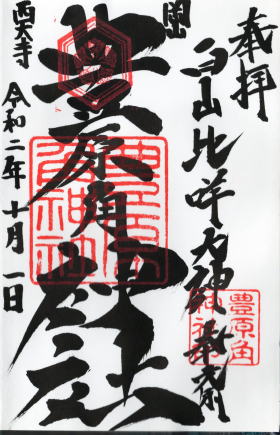 奉拝
白山比咩大神
岡山
豊原角神社
西大寺
令和二年十月一日
豊原角
神社